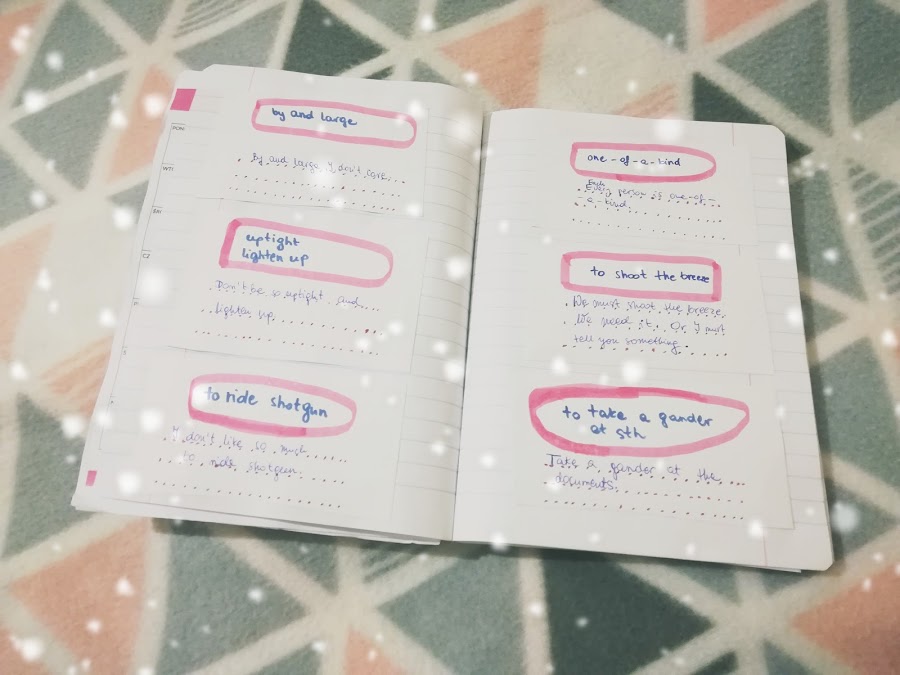 PON
WT
ŚR
CZ
by and large
By and large, I don't care...
uptight
lighten up
Don't be so uptight and...
lighten up.
to ride shotgun
I don't like so much
to ride shotgun.
one-of-a-kind
Each
Every person is one-of-
-a-kind.
to shoot the breeze
We must shoot the breeze.
We need it. Or I must
tell you something.
to take a gander
at sth
Take a gander at the
documents.